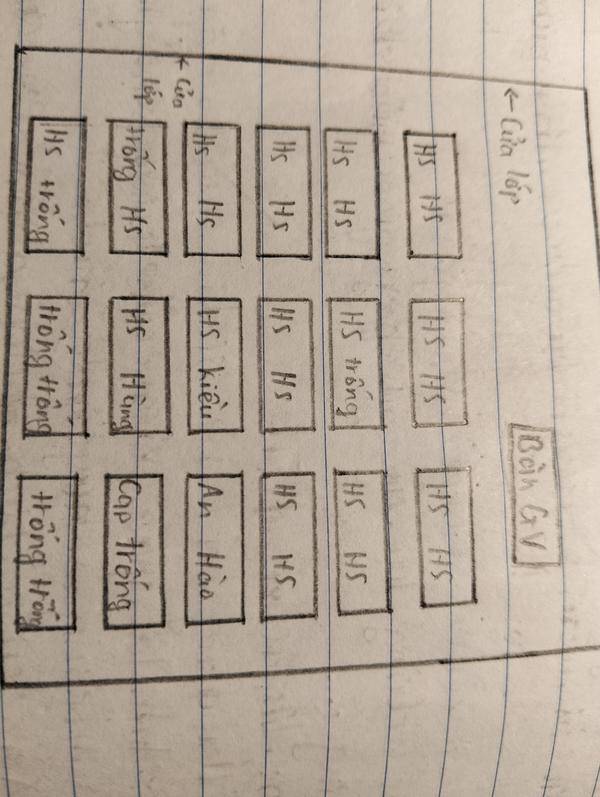 ← Cửa lớp
Bàn GV
HS HS
HS HS
HS HS
HS HS
HS trống
HS HS
HS HS
HS HS
HS HS
HS HS
HS kiều
An Hào
← Cửa
lớp
trống HS
HS Hùng
Cao trống
HS trống
trống trống
trống trống